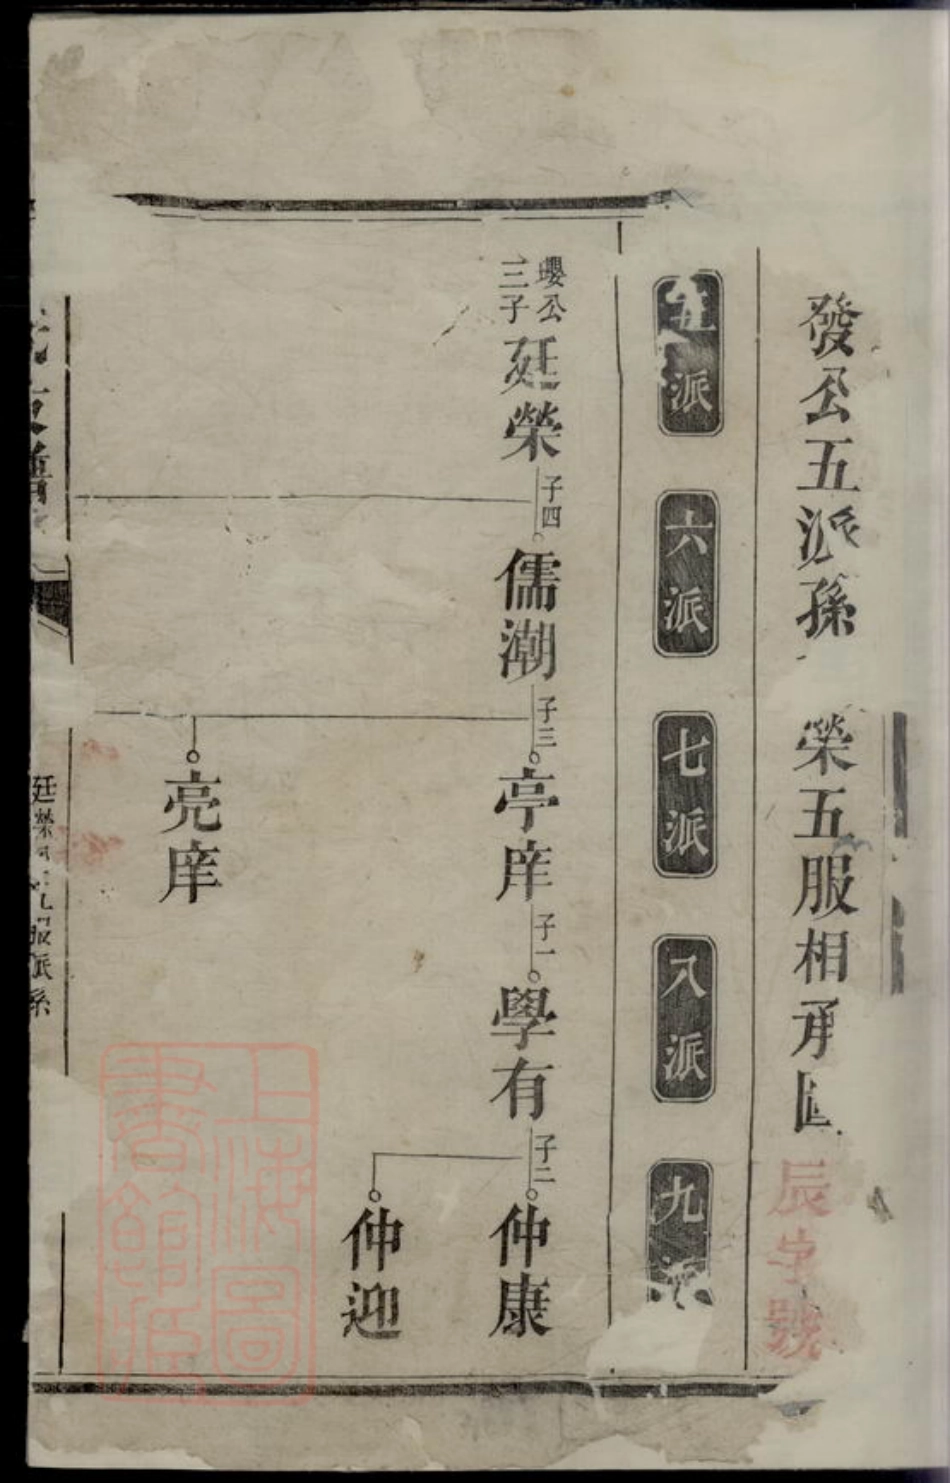 發公五派孫 榮五服相承圖
辰字號
五派
六派
七派
八派
九派
瓔公
三子
廷榮
子四
儒潮
子三
亭庠
子一
學有
子二
仲康
仲迎
亮庠
上海圖
書館藏